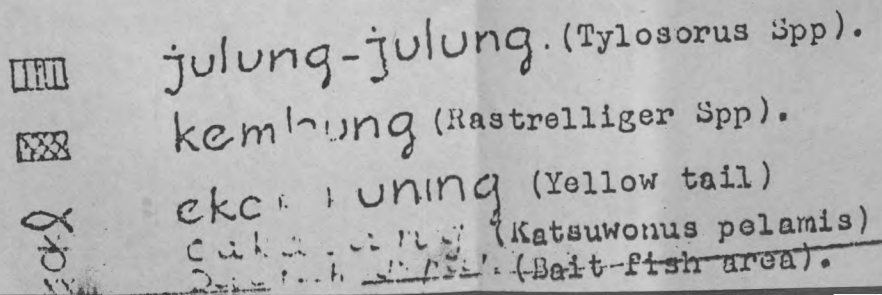 julung-julung. (Tylosorus Spp).
kembung (Rastrelliger Spp).
(Yellow tail)
(Katsuwonus pelamis)
(Bait-fish area).